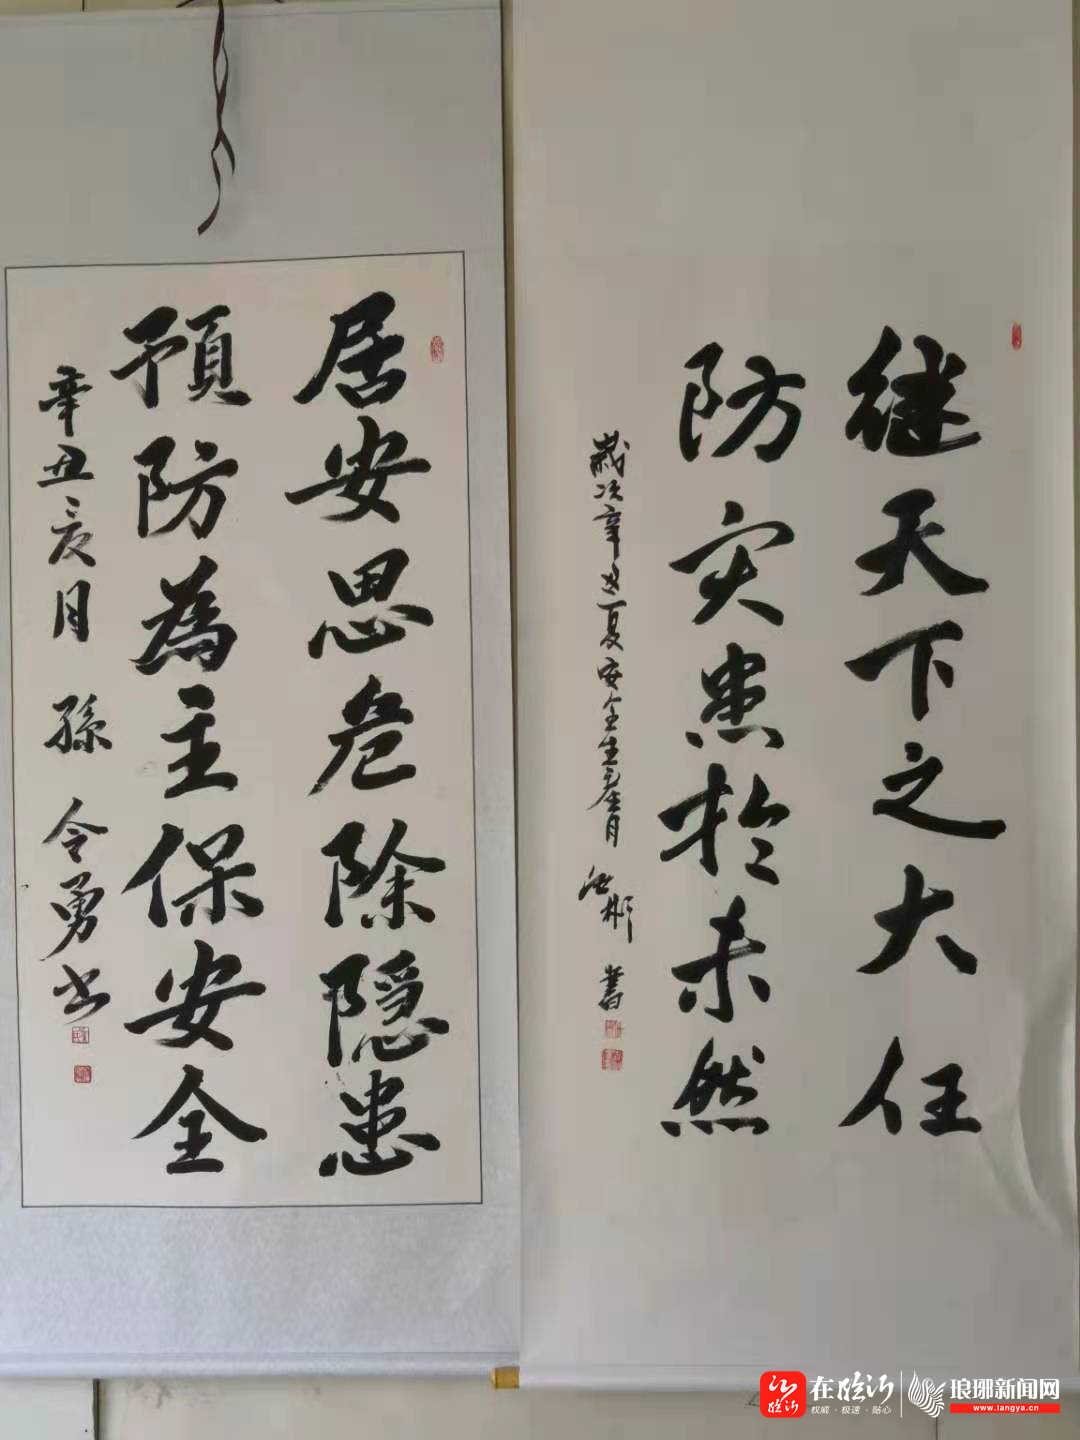 继天下之大任
防灾患於未然
歲次辛丑夏安全生產月 彬 書
居安思危除隐患
預防為主保安全
辛丑亥月 孫令勇书
在临沂
权威·极速·贴心
琅琊新闻网
www.langya.cn